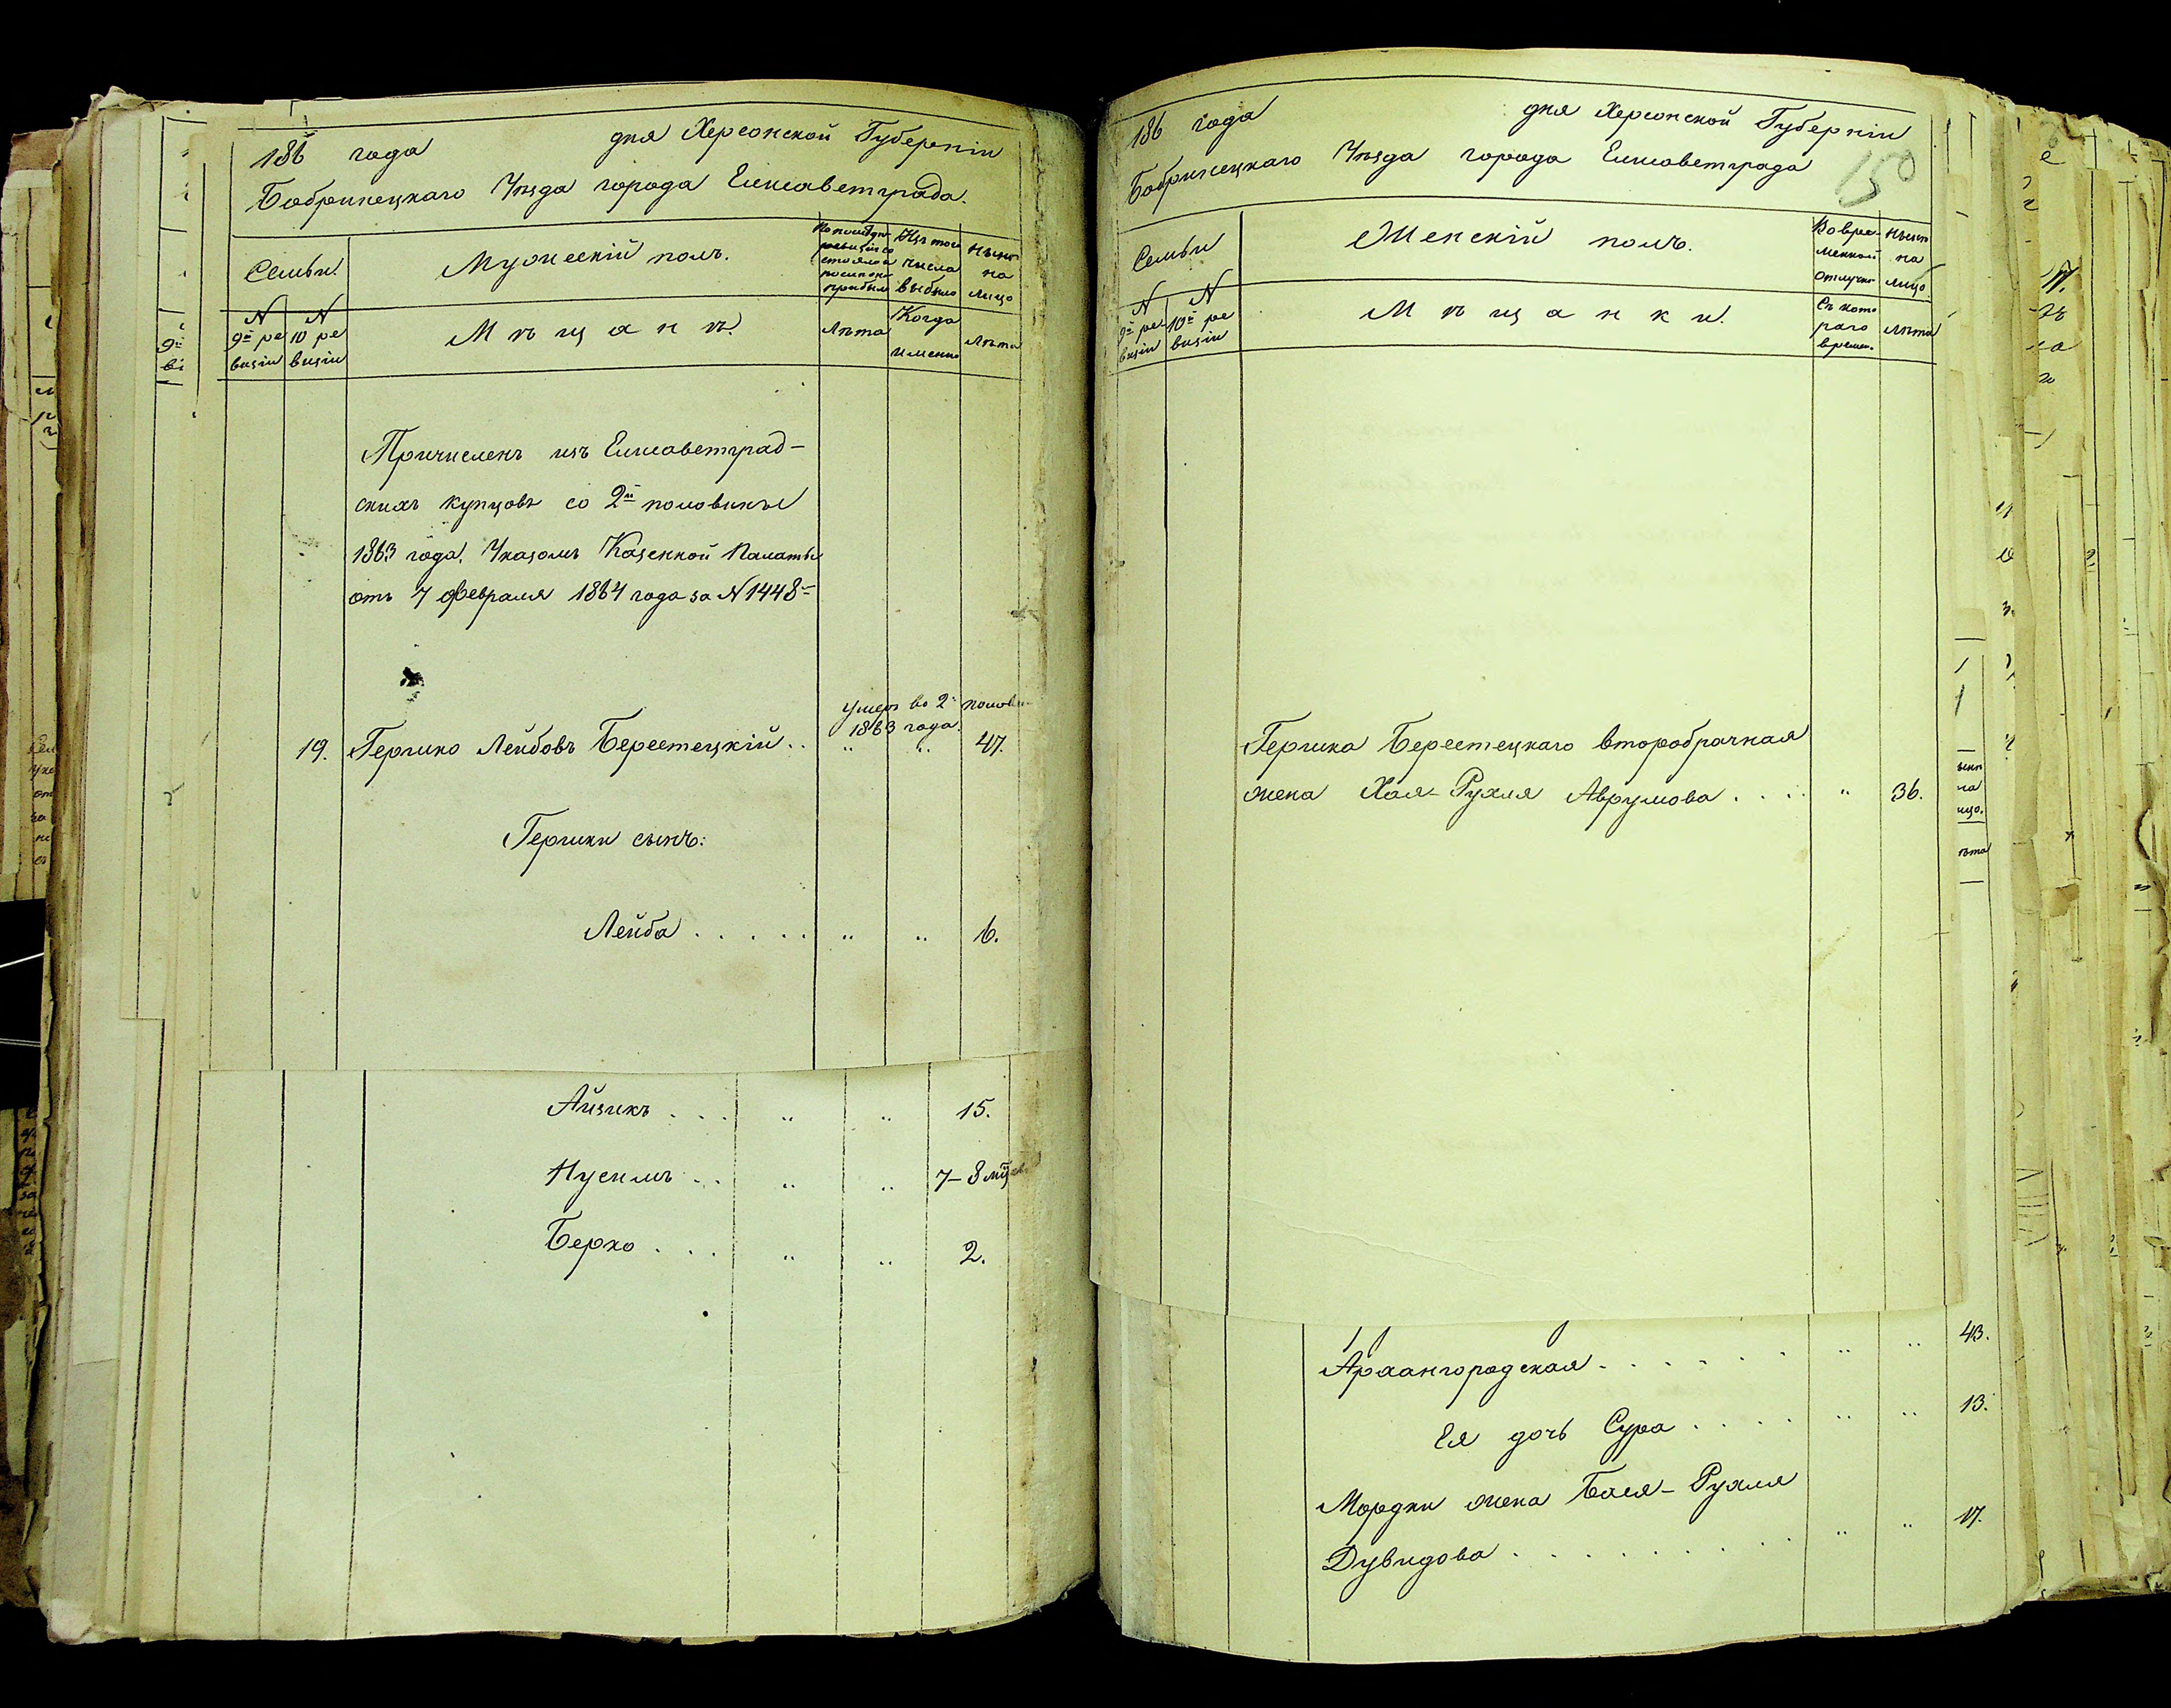 186 года дня Херсонской Губерніи
Бобринецкаго Уѣзда города Елисаветграда.
Семьи. Мужескій полъ.
Изъ того числа выбыло
Нынѣ на лицо
№ 9й ревизіи
№ 10 ревизіи
Мѣщанѣ.
Лѣта
Когда именно
Лѣта
Причисленъ изъ Елисаветград-
скихъ купцовъ со 2й половины
1863 года. Указомъ Казенной Палаты
отъ 7 февраля 1864 года за № 1448
умеръ во 2й полов
1863 года.
19. Гершко Лейбовъ Берестецкій .. " " 47.
Гершки сынъ:
Лейба . . . . . " " 6.
Айзикъ . . . " " 15.
Нусимъ . . " " 7-8 мц
Берко . . . " " 2.
186 года дня Херсонской Губерніи
Бобринецкаго Уѣзда города Елисаветграда
150
Семьи Женскій полъ.
Во временной отлучкѣ
Нынѣ на лицо.
№ 9й ревизіи
№ 10й ревизіи
Мѣщанки.
Съ котораго времен.
Лѣта
Гершка Берестецкаго второбрачная
жена Хая-Рухля Аврумова . . . . " 36.
Архангородская . . . . . . " " 43.
Ея дочь Сура . . . . " " 13.
Мордки жена Бася-Рухля
Дувидова . . . . . . . . " " 17.